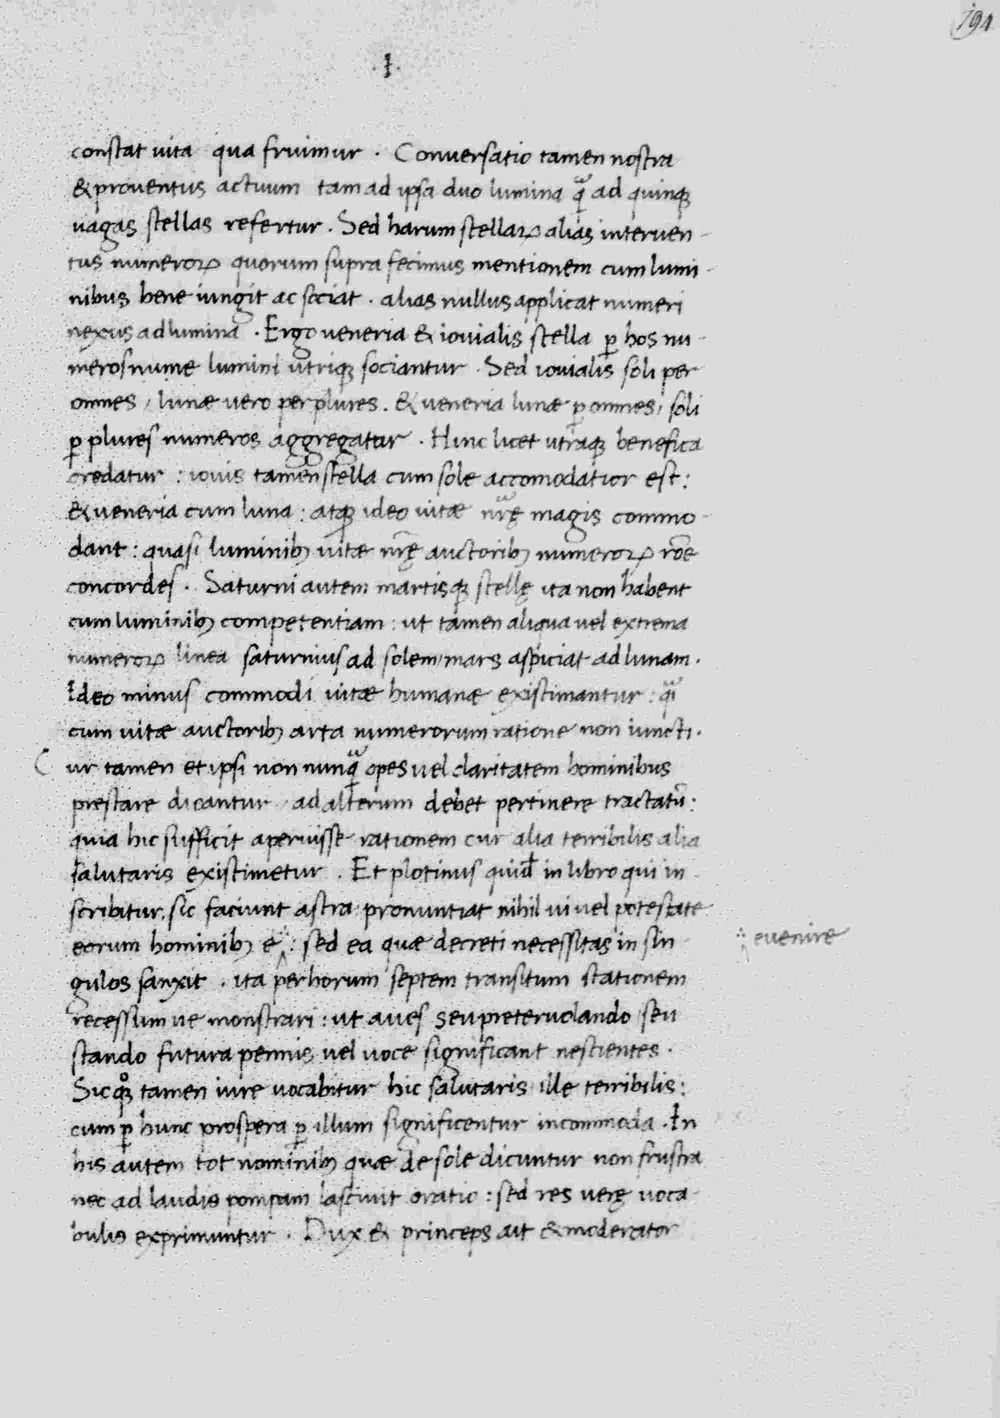 194
.I.
constat uita qua fruimur . Conversatio tamen nostra
& proventus actuum tam ad ipsa duo lumina q̃ ad quinqꝫ
uagas stellas refertur . Sed harum stellaꝝ alias interven-
tus numeroꝝ quorum supra fecimus mentionem cum lumi-
nibus bene iungit ac sociat . alias nullus applicat numeri
nexus ad lumina . Ergo veneria & iovialis stella ꝑ hos nu-
meros numc lumini utriqꝫ sociantur . Sed iovialis soli per
omnes , lunæ vero per plures . & veneria lunæ ꝑ omnes , soli
ꝑ plures numeros aggregatur . Hinc licet utraqꝫ benefica
credatur : iovis tamen stella cum sole accomodatior est :
& veneria cum luna : atqꝫ ideo uitæ nr̃ę magis commo-
dant : quasi luminibꝫ uitæ nr̃ę auctoribꝫ numeroꝝ rõe
concordes . Saturni autem martisqꝫ stellę ita non habent
cum luminibꝫ competentiam : ut tamen aliqua vel extrema
numeroꝝ linea saturnius ad solem, mars aspiciat ad lunam .
Ideo minus commodi uitæ humanæ existimantur : q̃i
cum uitæ auctoribꝫ arta numerorum ratione non iuncti .
Cur tamen et ipsi non nunq̃ opes vel claritatem hominibus
prestare dicantur , ad alterum debet pertinere tractatũ :
quia hic sufficit aperuisse rationem cur alia terribilis alia
salutaris existimetur . Et plotinus quid in libro qui in-
scribitur, sic faciunt astra pronuntiat nihil ui vel potestate
eorum hominibꝫ e ∴ sed ea quæ decreti necessitas in sin- ∴ evenire
gulos sanxit . ita per horum septem transitum stationem
recessum ve monstrari : ut aves seu pretervolando seu
stando futura pennis vel voce significant nescientes .
Sicqꝫ tamen iure vocabitur hic salutaris ille terribilis :
cum ꝑ hunc prospera ꝑ illum significentur incommoda . In
his autem tot nominibꝫ quæ de sole dicuntur non frustra
nec ad laudis pompam lascivit oratio : sed res verę voca-
bulis exprimuntur . Dux & princeps ait & moderator